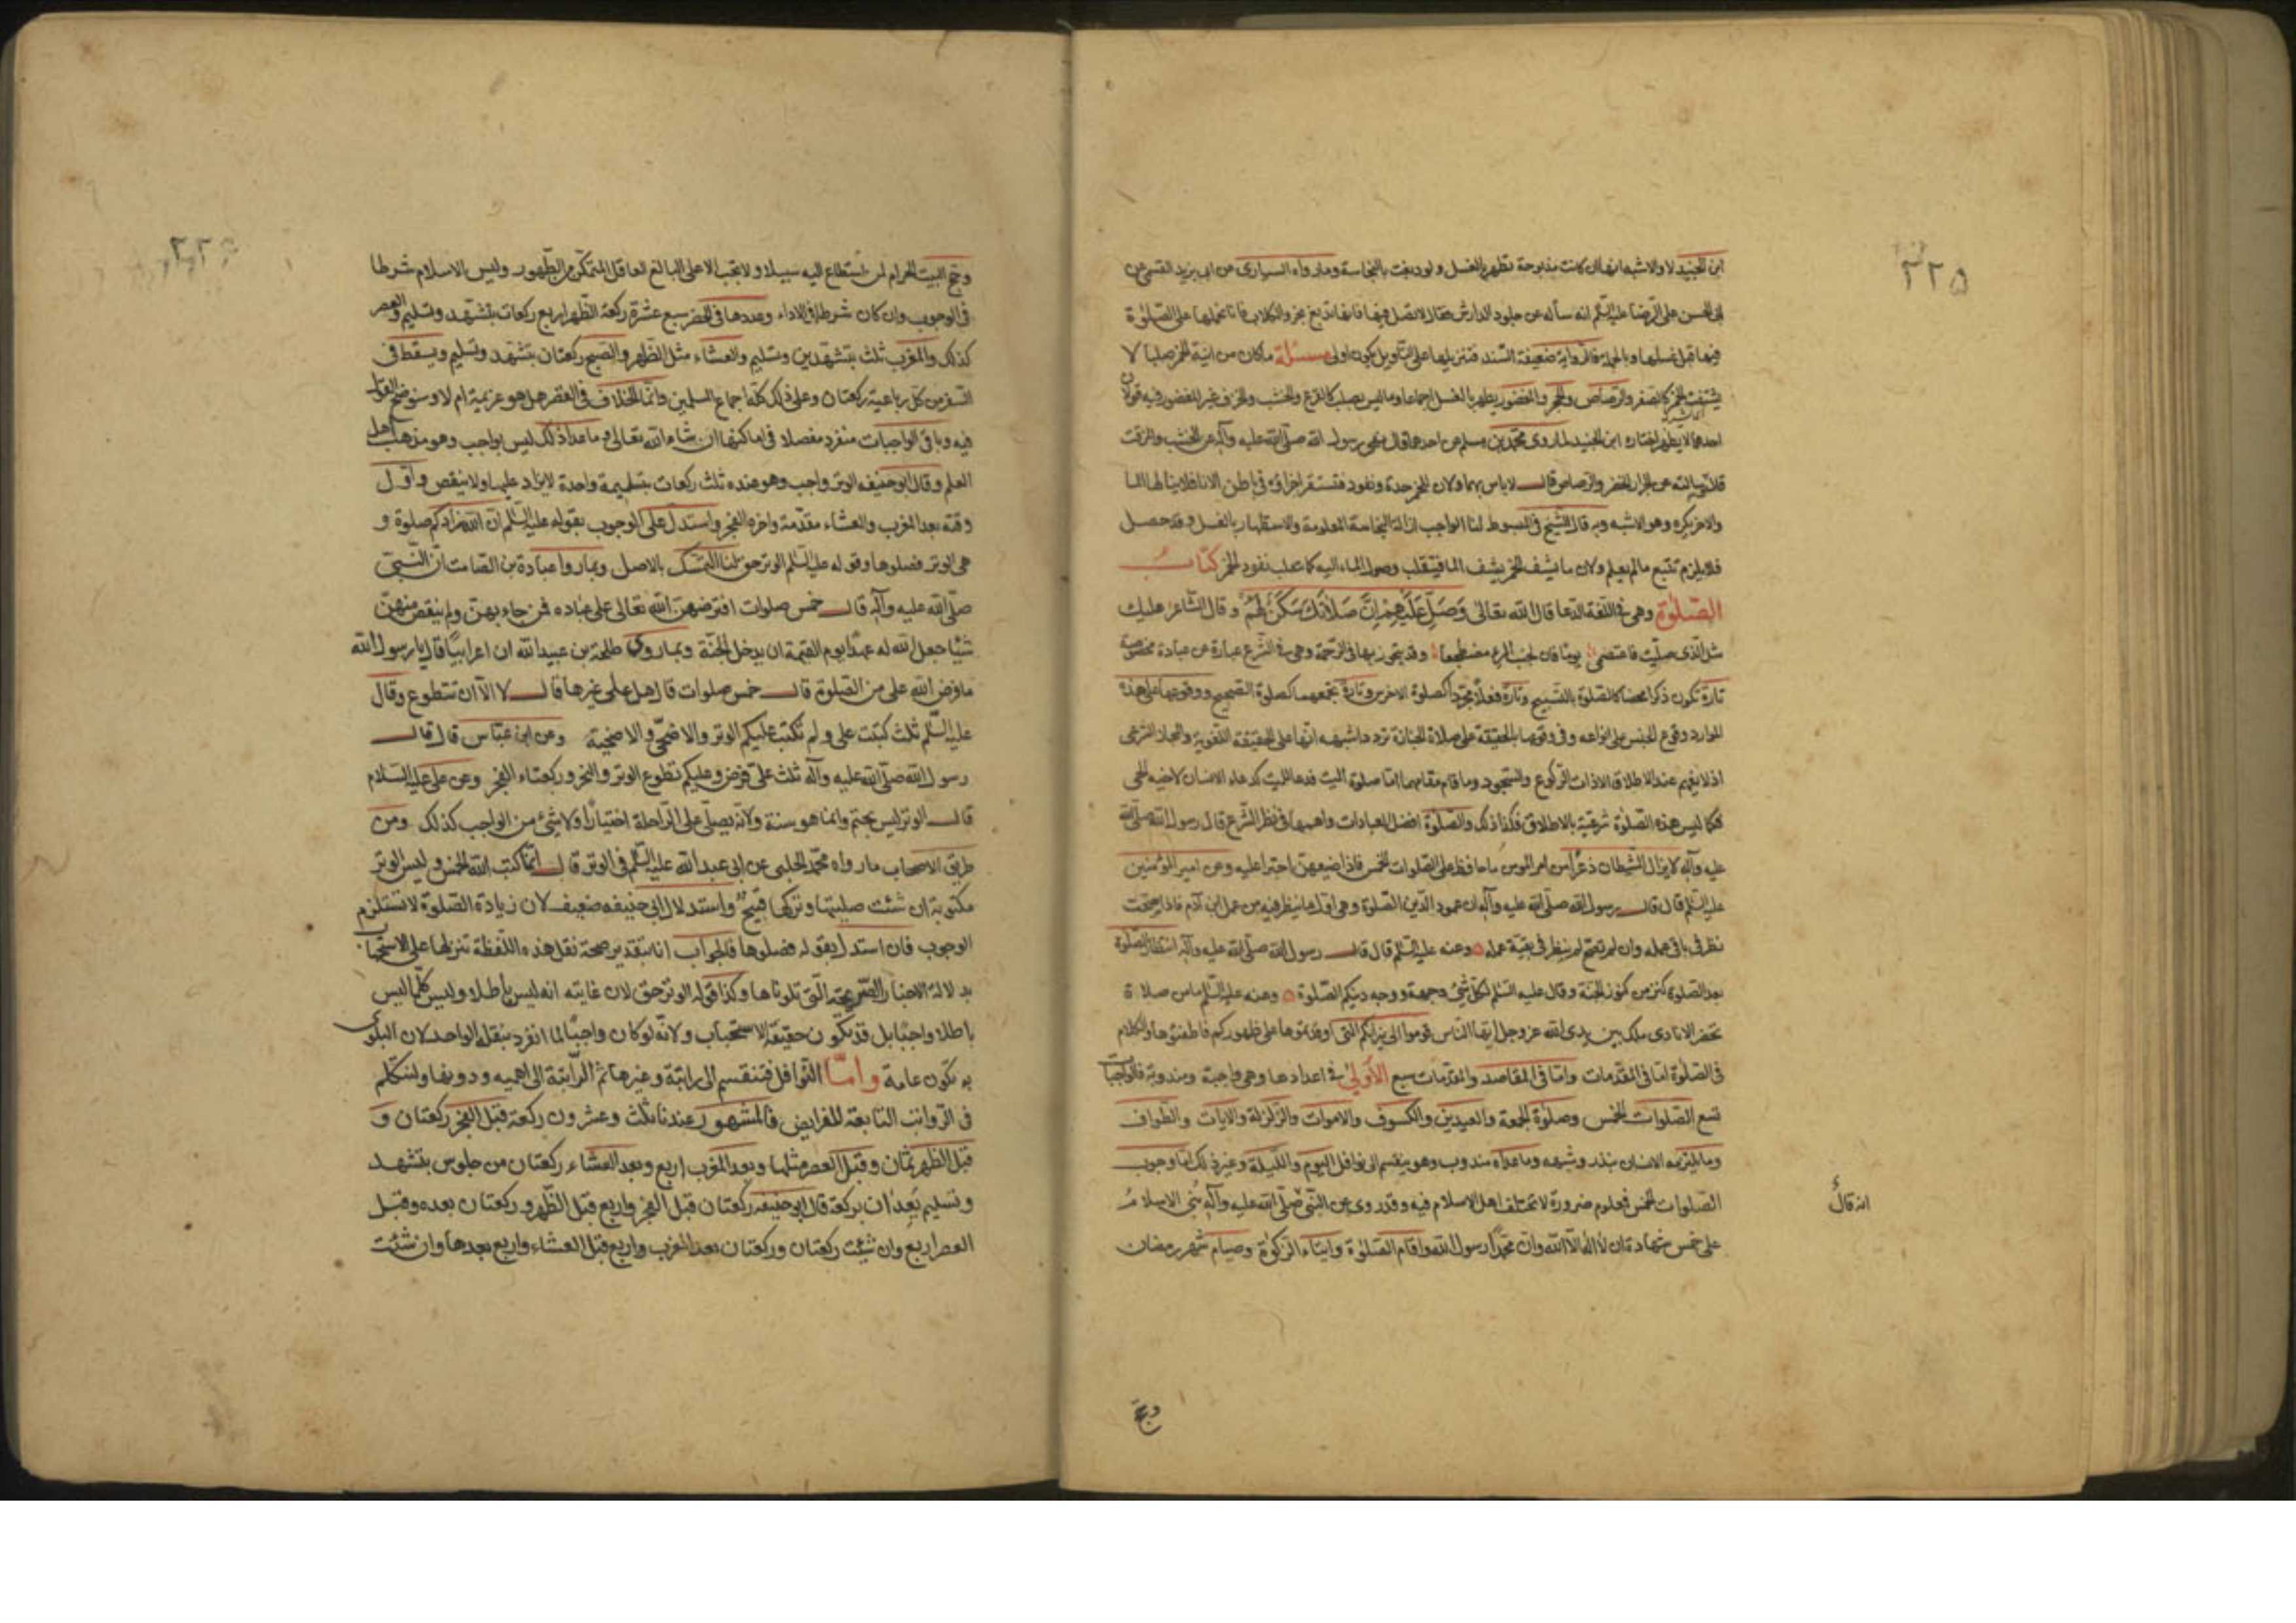 ٢٢٥
ابن الجنيد لا والاشبه انها ان كانت مذبوحة تطهر بالغسل ولو دبغت بالنجاسة وما رواه السياري عن ابي يزيد القسمي عن
ابى الحسن على الرضا عليه السلم انه سأله عن جلود الدارش فقال لا تصل فيها فانها تدبغ بخرؤ الكلاب فانا نحملها على الصلوة
فيها قبل غسلها وبالجملة فالرواية ضعيفة السند فتنزيلها على التأويل يكون اولى مسئلة ما كان من انية الخمر صلبا لا
يشف الخمر كالصفر والرصاص والحجر والمغضور يطهر بالغسل اجماعا وما ليس بصلب كالقرع والخشب والخزف غير المغضور فيه قولان
احدهما لا يطهر اختاره ابن الجنيد لما روى محمد بن مسلم عن احدهما قال نهى رسول الله صلى الله عليه وآله عن الخشب والمزفت
والاخر يكره وهو الاشبه وبه قال الشيخ في المبسوط لنا الواجب ازالة النجاسة المعلومة والاستظهار بالغسل وقد حصل
فلا يلزم تتبع ما لم يعلم ولان ما يشف الخمر يشف الماء كتاب
الصلوة وهى فى اللغة الدعا قال الله تعالى وَصَلِّ عَلَيْهِمْ اِنَّ صَلَاتَكَ سَكَنٌ لَهُمْ وقال الشاعر عليك
مثل الذى صليت فاغتمضى يوما فان لجنب المرء مضطجعا وقد يتجوز بها فى الرحمة وهى فى الشرع عبارة عن عبادة مخصوصة
تارة تكون ذكرا محضا كالصلوة بالتسبيح وتارة فعلا مجردا كصلوة الاخرس وتارة تجمعهما كصلوة الصحيح ووقوعها على هذه
الموارد وقوع الجنس على انواعه وفى وقوعها بالحقيقة على صلاة الجنازة تردد اشبهه انها على الحقيقة اللغوية والمجاز الشرعى
اذ لا يفهم عند الاطلاق الا ذات الركوع والسجود وما قام مقامهما اما صلوة الميت فدعا للميت كدعاء الانسان لاخيه الحى
فكما ليس هذه الصلوة شرعية بالاطلاق فكذا ذلك والصلوة افضل العبادات واهمها فى نظر الشرع قال رسول الله صلى الله
عليه وآله لا يزال الشيطان ذعرا من امر المومن ما حافظ على الصلوات الخمس فاذا ضيعهن اجترا عليه وعن امير المؤمنين
عليه السلم قال قال رسول الله صلى الله عليه وآله ان عمود الدين الصلوة وهى اول ما ينظر فيه من عمل ابن آدم فاذا صحت
نظر فى باقى عمله وان لم تصح لم ينظر فى بقية عمله وعنه عليه السلم قال قال رسول الله صلى الله عليه وآله انتظار الصلوة
بعد الصلوة كنز من كنوز الجنة وقال عليه السلم لكل شئ وجه ووجه دينكم الصلوة وعنه عليه السلم ما من صلاة
تحضر الا نادى ملك بين يدى الله عز وجل ايها الناس قوموا الى نيرانكم التى اوقدتموها على ظهوركم فاطفئوها والكلام
فى الصلوة اما فى المقدمات واما فى المقاصد والمقدمات سبع الاولى فى اعدادها وهى واجبة ومندوبة فالواجبات
تسع الصلوات الخمس وصلوة الجمعة والعيدين والكسوف والاموات والزلزلة والايات والطواف
وما يلتزمه الانسان بنذر وشبهه وما عداه مندوب وهو ينقسم الى نوافل اليوم والليلة وغير ذلك اما وجوب
الصلوات الخمس فمعلوم ضرورة لا تختلف اهل الاسلام فيه وقد روى عن النبى صلى الله عليه وآله بُنى الاسلامُ
انه قال
على خمس شهادة ان لا اله الا الله وان محمدا رسول الله واقام الصلوة وايتاء الزكوة وصيام شهر رمضان
وحج
وحج البيت الحرام لمن استطاع اليه سبيلا ولا تجب الا على البالغ العاقل المتمكن من الطهور وليس الاسلام شرطا
فى الوجوب وان كان شرطا فى الاداء وعددها فى الحضر سبع عشرة ركعة الظهر اربع ركعات بتشهد وتسليم والعصر
كذلك والمغرب ثلث بتشهدين وتسليم والعشاء مثل الظهر والصبح ركعتان بتشهد وتسليم ويسقط فى
السفر من كل رباعية ركعتان وعلى ذلك كله اجماع المسلمين وانما الخلاف فى القصر هل هو عزيمة ام لا وسنوضح القول
فيه وباقى الواجبات منفرد مفصلا فى اماكنها ان شاء الله تعالى وما عدا ذلك ليس بواجب وهو مذهب اهل
العلم وقال ابو حنيفه الوتر واجب وهو عنده ثلث ركعات بتسليمة واحدة لا يزاد عليها ولا ينقص واول
وقته بعد المغرب والعشاء مقدمة واخره الفجر واستدل على الوجوب بقوله عليه السلم ان الله زادكم صلوة و
هى الوتر فصلوها وقوله عليه السلم الوتر حق لنا التمسك بالاصل وبما رواه عبادة بن الصامت ان النبى
صلى الله عليه وآله قال خمس صلوات افترضهن الله تعالى على عباده فمن جاء بهن ولم ينقص منهن
شيئا جعل الله له عهدا يوم القيمة ان يدخل الجنة وبما روى طلحة بن عبيد الله ان اعرابيا قال يا رسول الله
ما فرض الله على من الصلوة قال خمس صلوات قال هل على غيرها قال لا الا ان تتطوع وقال
عليه السلم ثلث كتبت على ولم تكتب عليكم الوتر والاضحى والاضحية وعن ابن عباس قال قال
رسول الله صلى الله عليه وآله ثلث على فرض وعليكم تطوع الوتر والنحر وركعتاء الفجر وعن على عليه السلام
قال الوتر ليس بحتم وانما هو سنة ولانه يصلى على الراحلة اختيارا ولا شئ من الواجب كذلك ومن
طريق الاصحاب ما رواه محمد الحلبى عن ابى عبد الله عليه السلم فى الوتر قال انما كتب الله الخمس وليس الوتر
مكتوبة ان شئت صليتها وتركها قبيح واستدلال ابى حنيفه ضعيف لان زيادة الصلوة لا تستلزم
الوجوب فان استدل بقوله فصلوها فالجواب انا بتقدير صحة نقل هذه اللفظة تنزيلها على الاستحباب
بدلالة الاخبار الصريحة التى تلوناها وكذا قوله الوتر حق لان غايته انه ليس باطلا وليس كلما ليس
باطلا واجبا بل قد يكون حقيقة الاستحباب ولانه لو كان واجبا لما انفرد بنقله الواحد لان البلوى
به تكون عامة واما النوافل فتنقسم الى راتبة وغيرها ثم الراتبة الى اهميه ودونها ولنتكلم
فى الرواتب التابعة للفرايض فالمشهور عندنا ثلث وعشرون ركعة قبل الفجر ركعتان و
قبل الظهر ثمان وقبل العصر مثلها وبعد المغرب اربع وبعد العشاء ركعتان من جلوس بتشهد
وتسليم يعدان بركعة قال ابو حنيفه ركعتان قبل الفجر واربع قبل الظهر و ركعتان بعده وقبل
العصر اربع وان شئت ركعتان وركعتان بعد المغرب واربع قبل العشاء واربع بعدها وان شئت